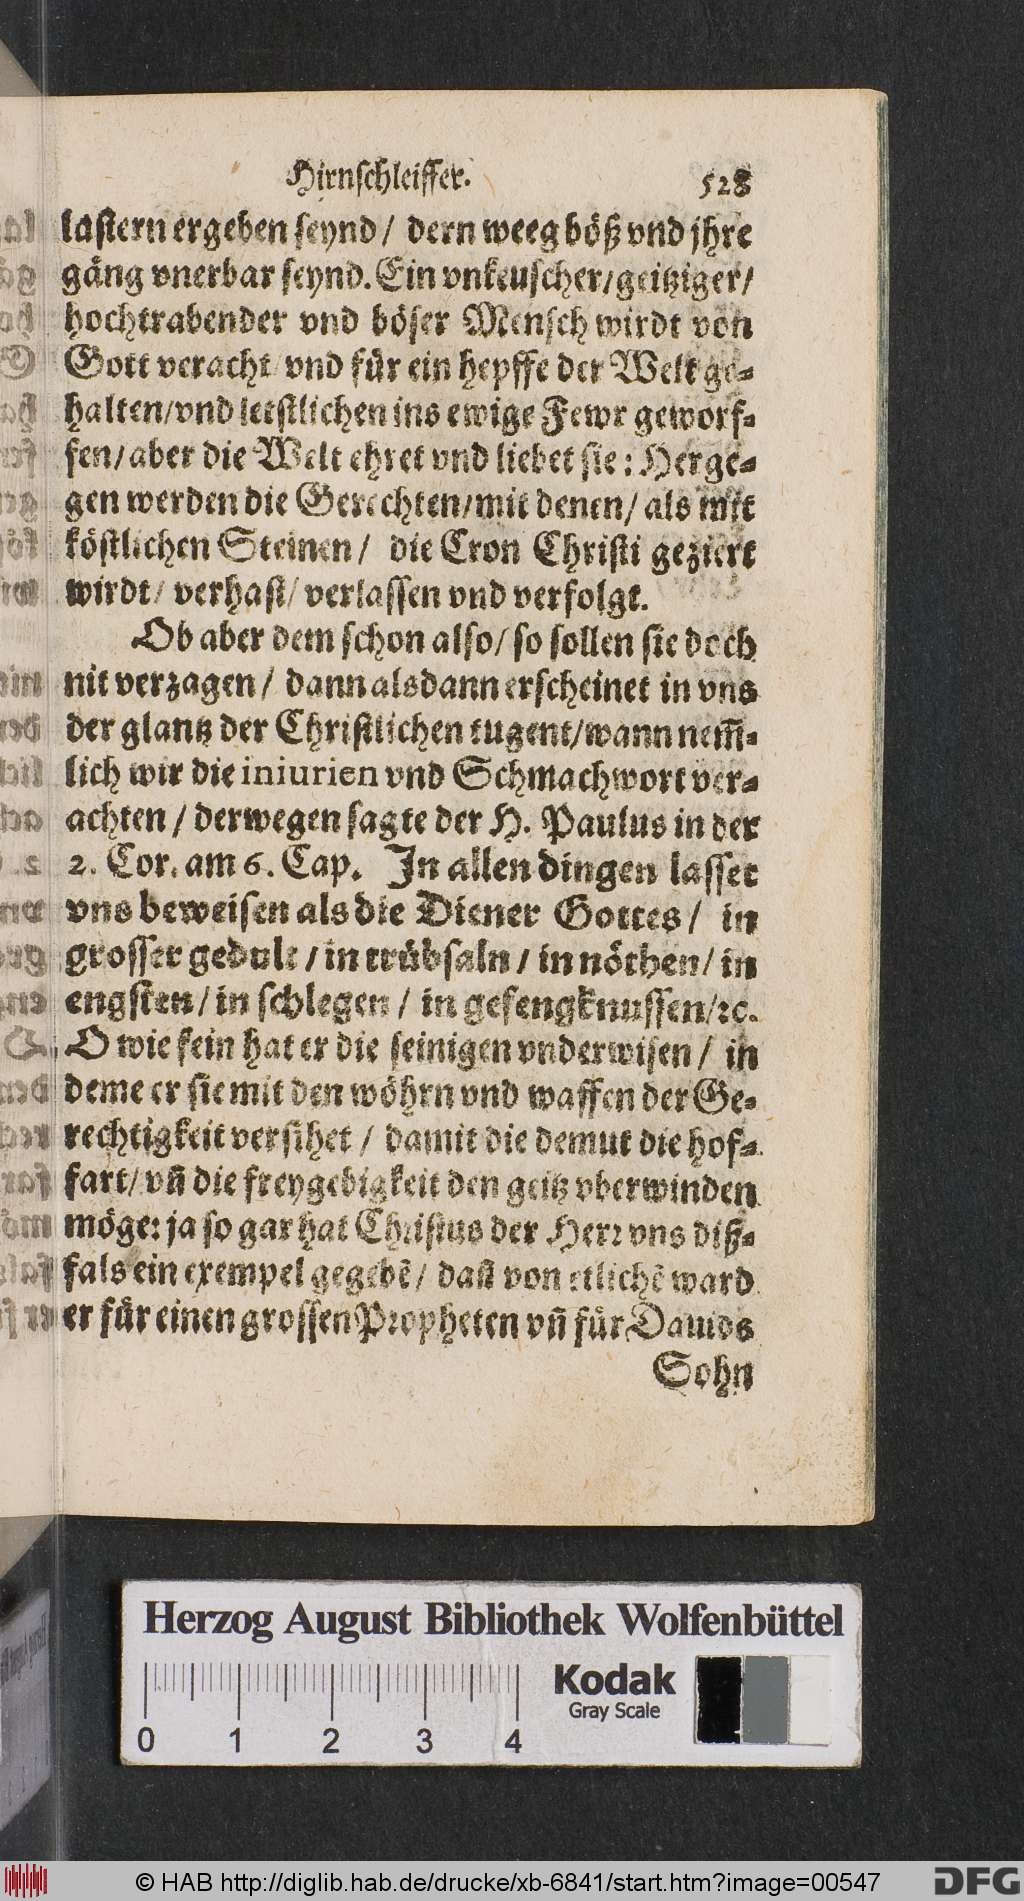 Hirnschleiffer. 528
lastern ergeben seynd / dern weeg böß vnd jhre
gäng vnerbar seynd. Ein vnkeuscher / geitziger /
hochtrabender vnd böser Mensch wirdt von
Gott veracht vnd für ein hepffe der Welt ge-
halten / vnd letstlichen ins ewige Fewr geworf-
fen / aber die Welt ehret vnd liebet sie : Herge-
gen werden die Gerechten / mit denen / als mit
köstlichen Steinen / die Cron Christi geziert
wirdt / verhast / verlassen vnd verfolgt.
Ob aber dem schon also / so sollen sie doch
nit verzagen / dann alsdann erscheinet in vns
der glantz der Christlichen tugent / wann nem̃-
lich wir die iniurien vnd Schmachwort ver-
achten / derwegen sagte der H. Paulus in der
2. Cor. am 6. Cap. In allen dingen lasset
vns beweisen als die Diener Gottes / in
grosser gedult / in trübsaln / in nöthen / in
engsten / in schlegen / in gefengknussen / ꝛc.
O wie fein hat er die seinigen vnderwisen / in
deme er sie mit den wöhrn vnd waffen der Ge-
rechtigkeit versihet / damit die demut die hof-
fart / vñ die freygebigkeit den geitz vberwinden
möge: ja so gar hat Christus der Herr vns diß-
fals ein exempel gegebẽ / dañ von etlichẽ ward
er für einen grossen Propheten vñ für Dauids
Sohn
Herzog August Bibliothek Wolfenbüttel
0 1 2 3 4
Kodak
Gray Scale
© HAB http://diglib.hab.de/drucke/xb-6841/start.htm?image=00547
DFG